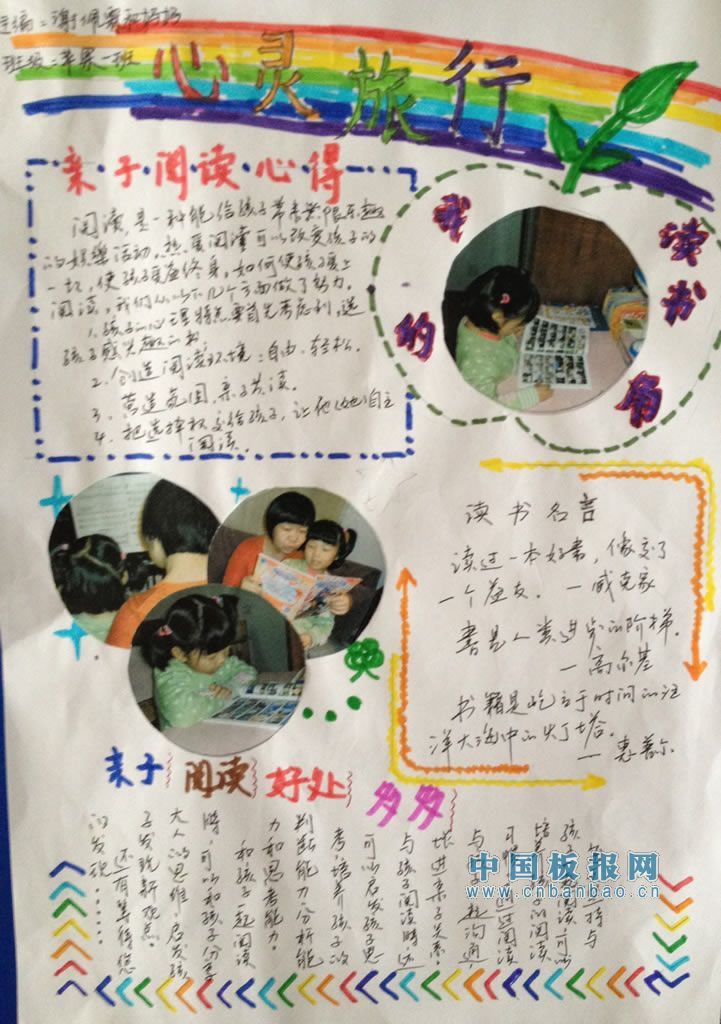 班级：苹果一班
心灵旅行
亲子阅读心得
阅读，是一种能给孩子带来无限乐趣
的娱乐活动，热爱阅读可以改变孩子的
一切，使孩子受益终身，如何使孩子爱上
阅读，我们从以下几个方面做了努力。
1.孩子的心理特点要首先考虑到，选
孩子感兴趣的书，
2.创造阅读环境：自由、轻松。
3、营造氛围，亲子共读。
4、把选择权交给孩子，让他(她)自主
阅读。
我的
读书角
读书名言
读过一本好书，像交了
一个益友。 —臧克家
书是人类进步的阶梯。
—高尔基
书籍是屹立于时间的汪
洋大海中的灯塔。
— 惠普尔
亲子阅读好处多多
与孩子一起沟通，
增进亲子关系。
与孩子阅读时还
可以启发孩子思
考，培养孩子的
判断能力、分析能
力和思考能力。
和孩子一起阅读
时，可以和孩子分享
大人的思维，启发孩
子发现新观点。
还有等待您
的发现……
中国板报网
www.cnbanbao.cn